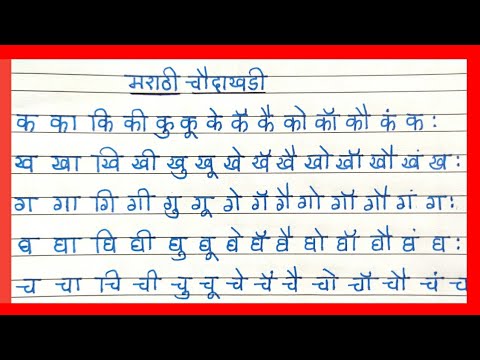 मराठी चौदाखडी
क का कि की कु कू के कॅ कै को कॉ कौ कं कः
ख खा खि खी खु खू खे खॅ खै खो खॉ खौ खं खः
ग गा गि गी गु गू गे गॅ गै गो गॉ गौ गं गः
घ घा घि घी घु घू घे घॅ घै घो घॉ घौ घं घः
च चा चि ची चु चू चे चॅ चै चो चॉ चौ चं च